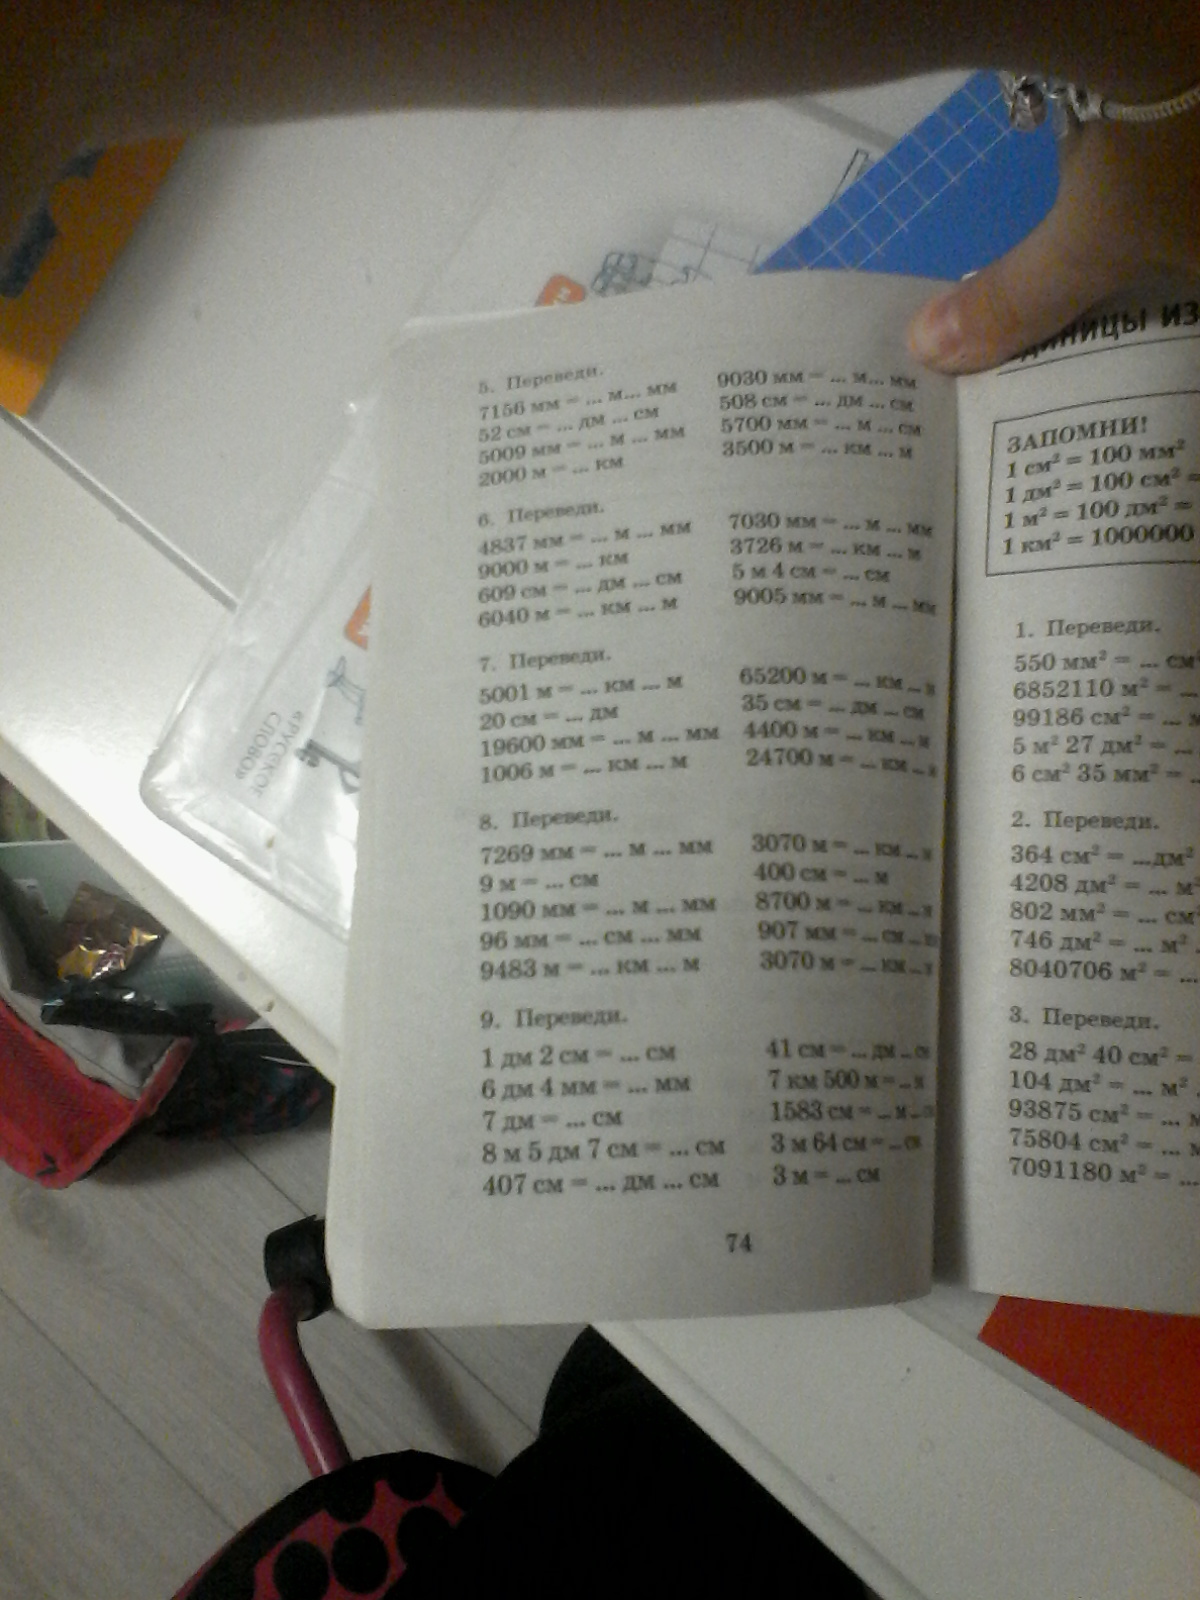 5. Переведи.
7156 мм = ... м... мм
52 см = ... дм ... см
5009 мм = ... м ... мм
2000 м = ... км
9030 мм = ... м... мм
508 см = ... дм ... см
5700 мм = ... м ... см
3500 м = ... км ... м
6. Переведи.
4837 мм = ... м ... мм
9000 м = ... км
609 см = ... дм ... см
6040 м = ... км ... м
7030 мм = ... м ... мм
3726 м = ... км ... м
5 м 4 см = ... см
9005 мм = ... м ... мм
7. Переведи.
5001 м = ... км ... м
20 см = ... дм
19600 мм = ... м ... мм
1006 м = ... км ... м
65200 м = ... км ... м
35 см = ... дм ... см
4400 м = ... км ... м
24700 м = ... км ...
8. Переведи.
7269 мм = ... м ... мм
9 м = ... см
1090 мм = ... м ... мм
96 мм = ... см ... мм
9483 м = ... км ... м
3070 м = ... км ...
400 см = ... м
8700 м = ... км ...
907 мм = ... см ...
3070 м = ... км ...
9. Переведи.
1 дм 2 см = ... см
6 дм 4 мм = ... мм
7 дм = ... см
8 м 5 дм 7 см = ... см
407 см = ... дм ... см
41 см = ... дм ... см
7 км 500 м = ... м
1583 см = ... м ...
3 м 64 см = ... см
3 м = ... см
74
ИЗ
ЗАПОМНИ!
1 см² = 100 мм²
1 дм² = 100 см² =
1 м² = 100 дм² =
1 км² = 1000000
1. Переведи.
550 мм² = ... см²
6852110 м² = ...
99186 см² = ... м
5 м² 27 дм² = ...
6 см² 35 мм² = ...
2. Переведи.
364 см² = ...дм²
4208 дм² = ... м²
802 мм² = ... см²
746 дм² = ... м²
8040706 м² = ...
3. Переведи.
28 дм² 40 см² =
104 дм² = ... м²
93875 см² = ... м
75804 см² = ... м
7091180 м² = ...
«РУССКОЕ
СЛОВО»